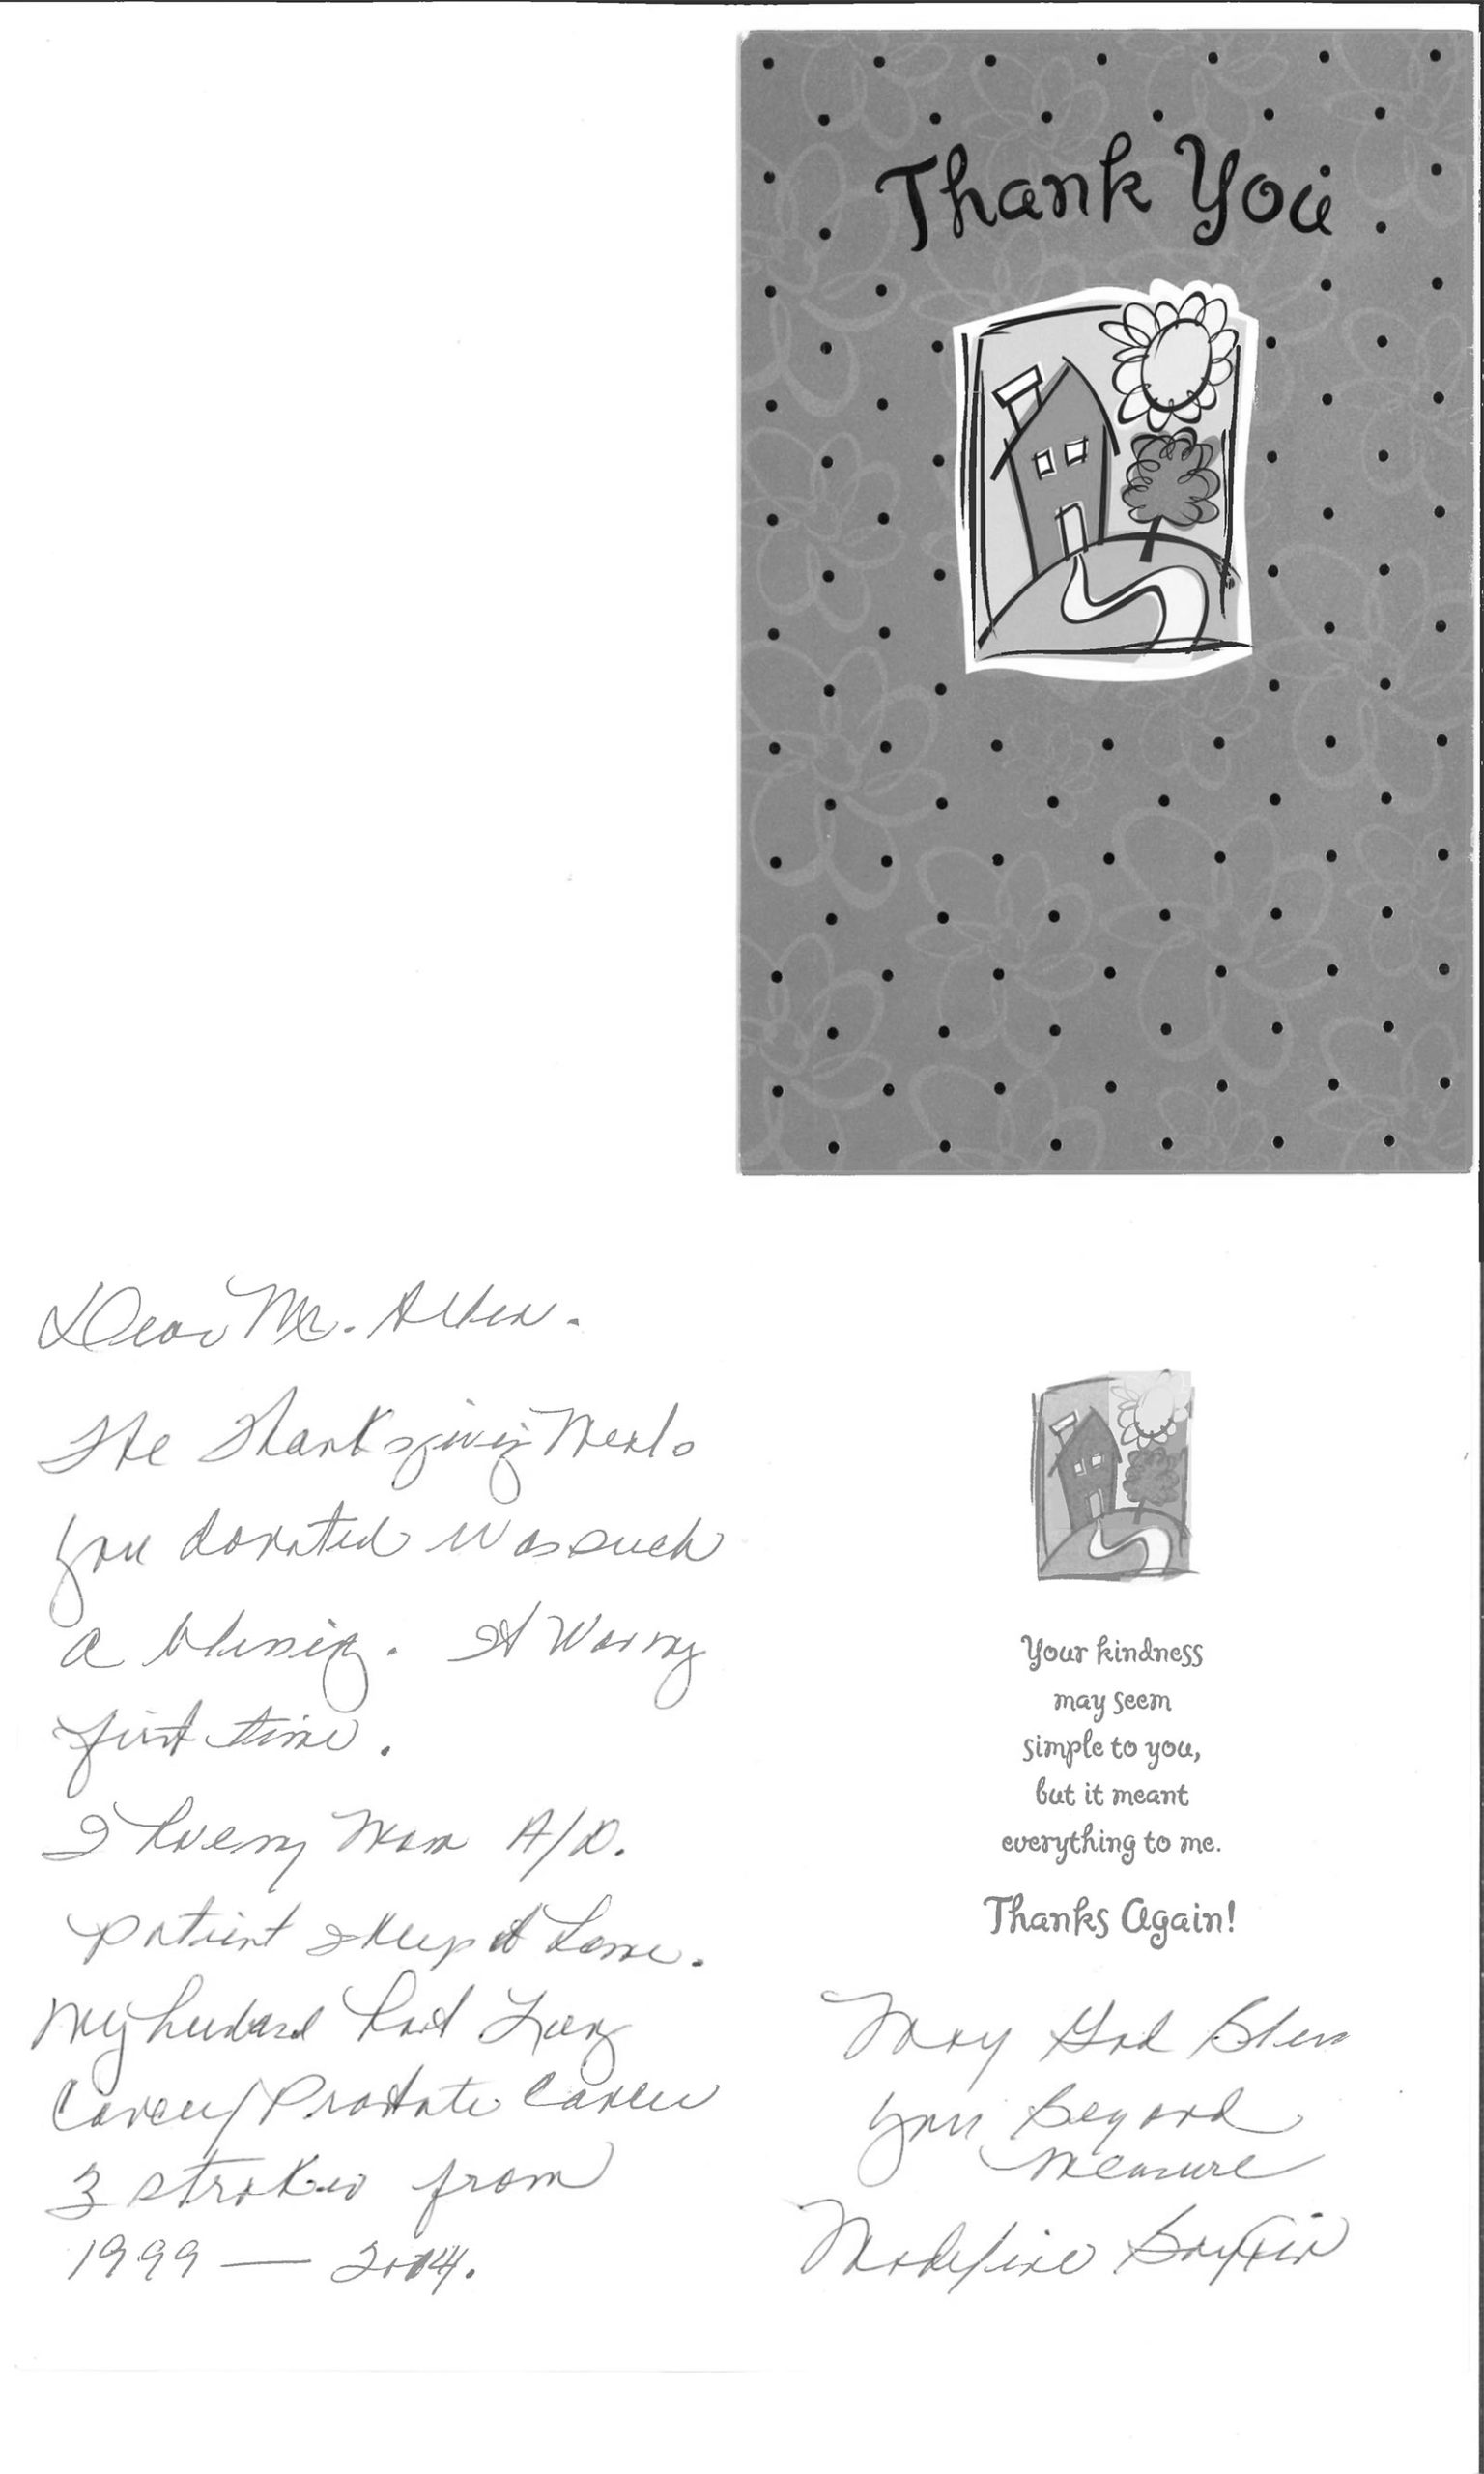 Thank You
Dear Mr. Allen.
The Thanksgiving Meals
you donated was such
a blessing. It was my
first time.
I have my Mom A/D.
patient I keep at home.
My husband had Lung
Cancer/Prostate Cancer
3 strokes from
1999 — 2014.
Your kindness
may seem
simple to you,
but it meant
everything to me.
Thanks Again!
May God Bless
you Beyond
measure
Madeline